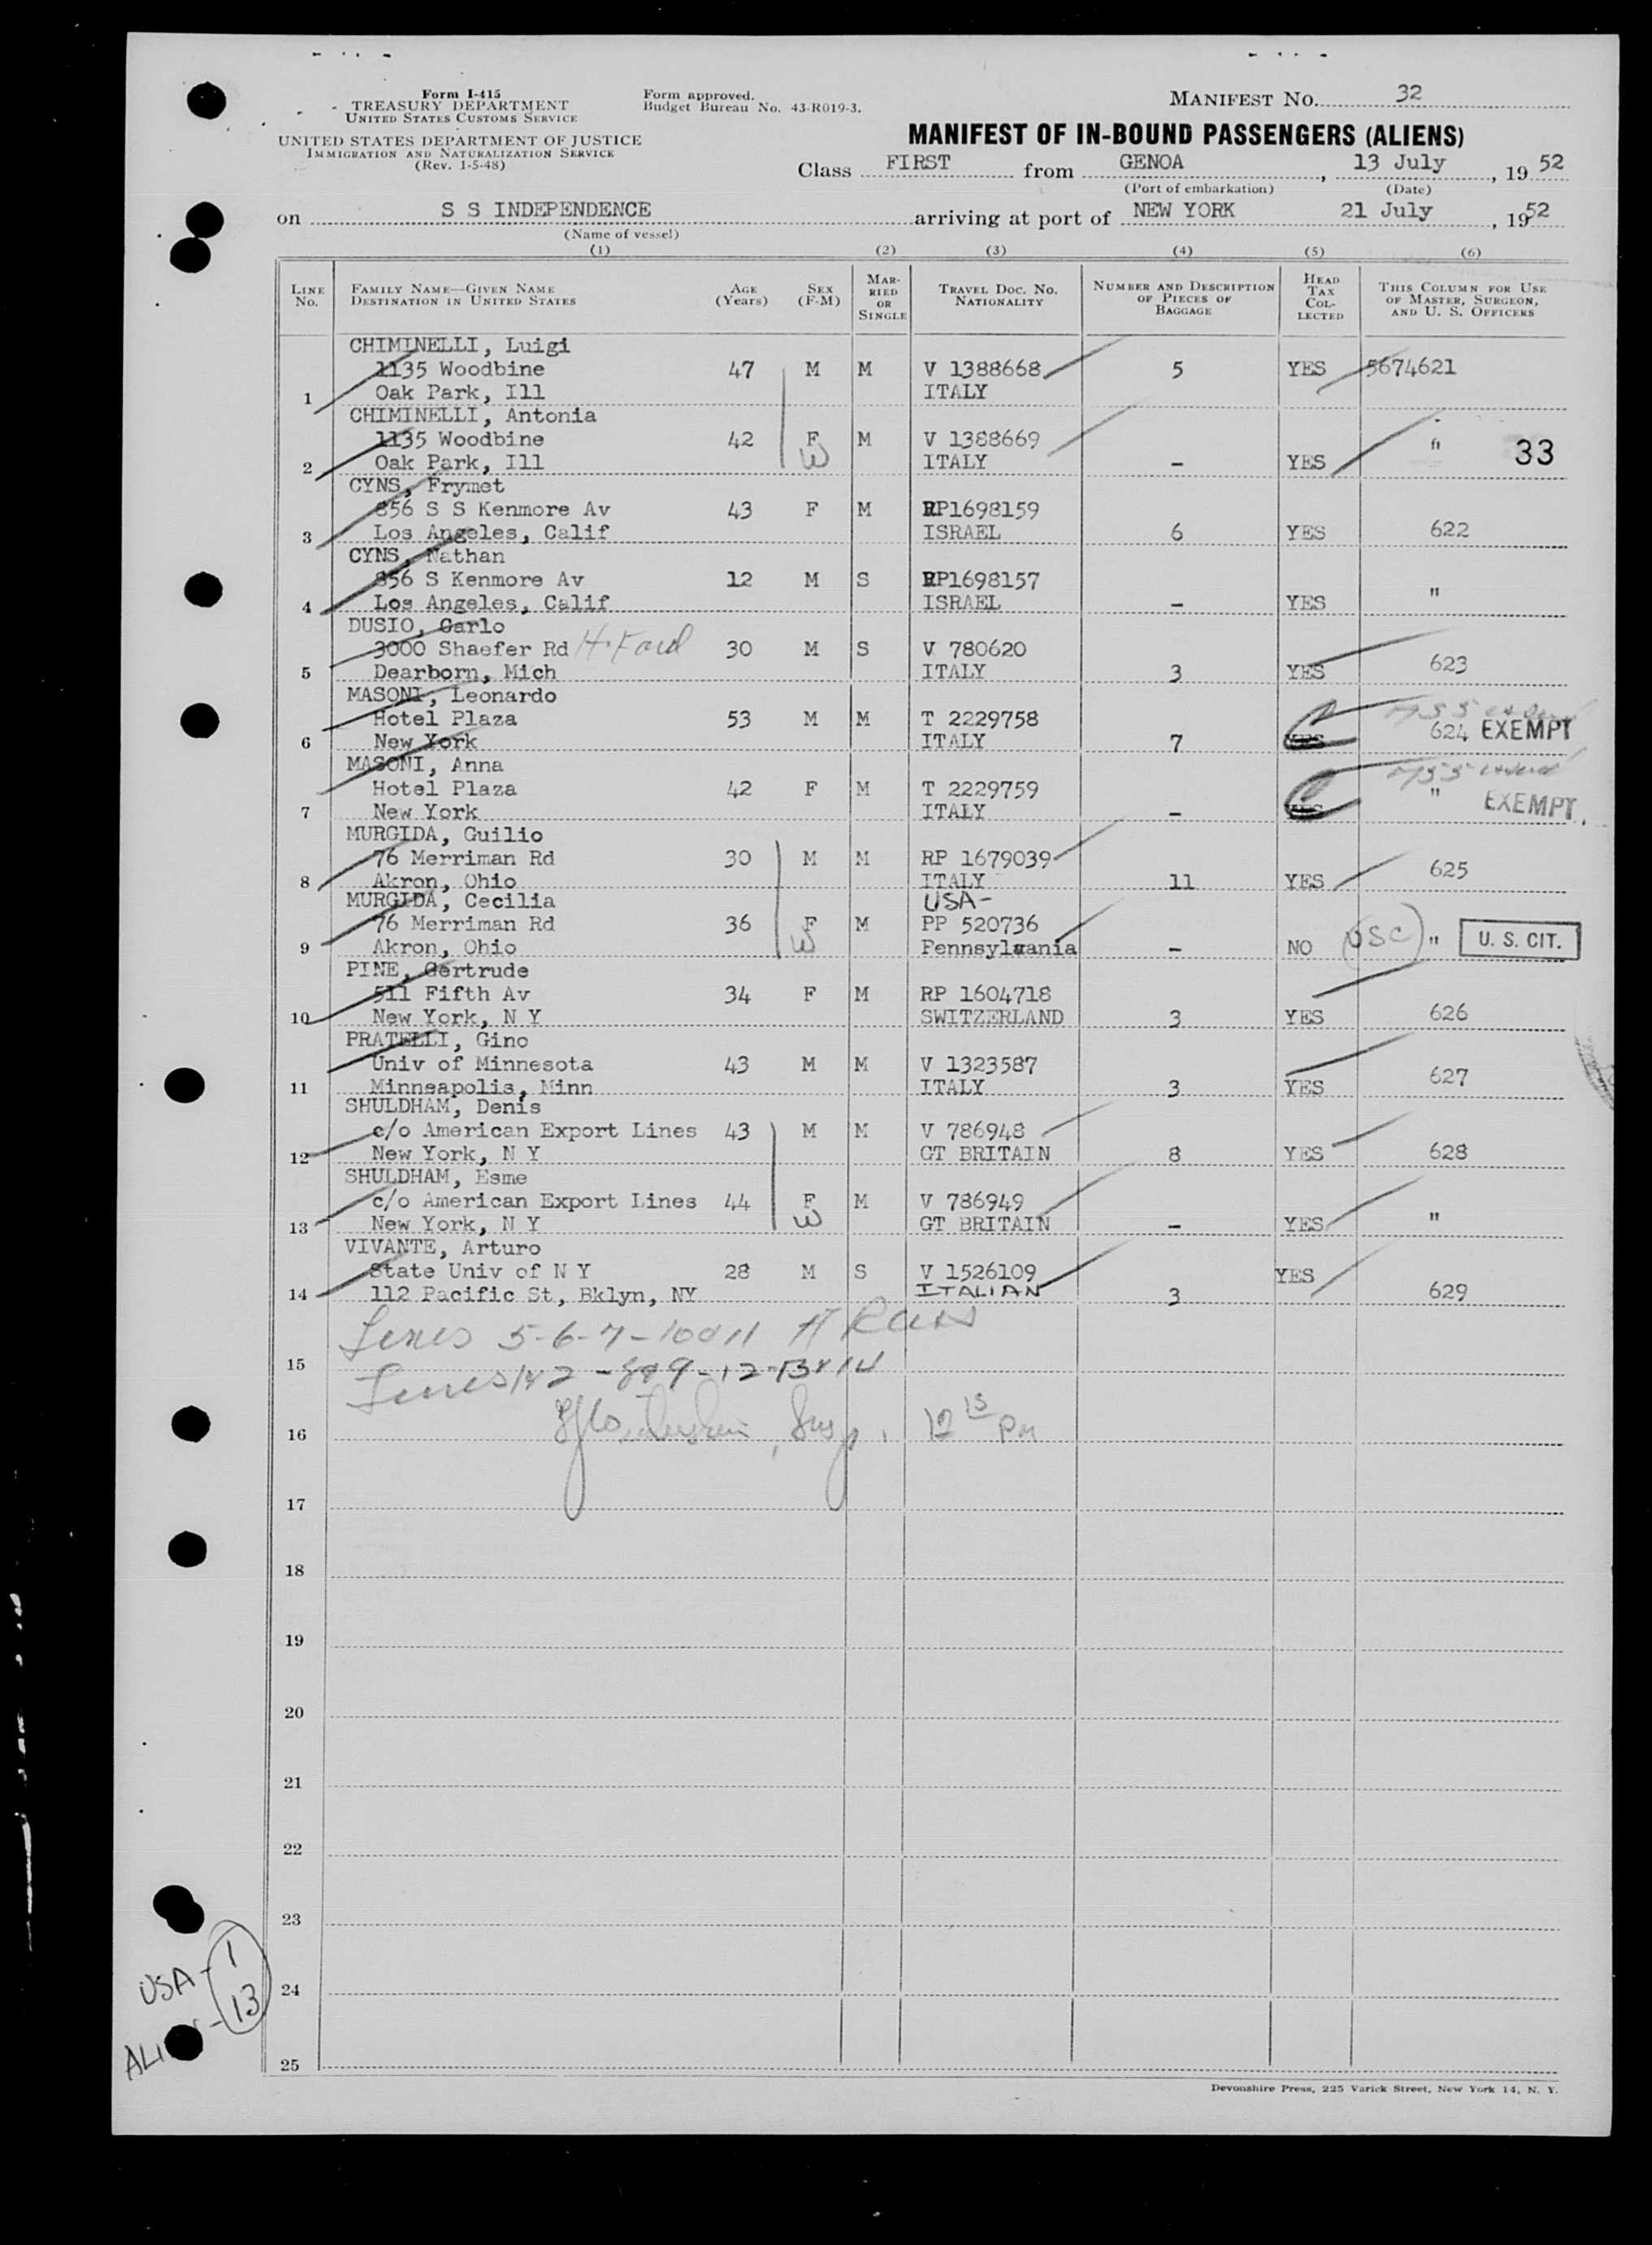 Form I-415
TREASURY DEPARTMENT
UNITED STATES CUSTOMS SERVICE
UNITED STATES DEPARTMENT OF JUSTICE
IMMIGRATION AND NATURALIZATION SERVICE
(Rev. 1-5-48)
Form approved.
Budget Bureau No. 43-R019-3.
MANIFEST NO. 32
MANIFEST OF IN-BOUND PASSENGERS (ALIENS)
Class FIRST from GENOA, 13 July, 1952
(Port of embarkation) (Date)
on S S INDEPENDENCE arriving at port of NEW YORK 21 July, 1952
(Name of vessel)
(1) (2) (3) (4) (5) (6)
LINE NO. FAMILY NAME—GIVEN NAME DESTINATION IN UNITED STATES AGE (Years) SEX (F-M) MARRIED OR SINGLE TRAVEL DOC. NO. NATIONALITY NUMBER AND DESCRIPTION OF PIECES OF BAGGAGE HEAD TAX COLLECTED THIS COLUMN FOR USE OF MASTER, SURGEON, AND U. S. OFFICERS
CHIMINELLI, Luigi
1135 Woodbine 47 M M V 1388668 5 YES 5674621
1 Oak Park, Ill ITALY
CHIMINELLI, Antonia
1135 Woodbine 42 F M V 1388669 "
2 Oak Park, Ill W ITALY - YES 33
CYNS, Frymet
856 S S Kenmore Av 43 F M RP1698159
3 Los Angeles, Calif ISRAEL 6 YES 622
CYNS, Nathan
856 S Kenmore Av 12 M S RP1698157 "
4 Los Angeles, Calif ISRAEL - YES
DUSIO, Carlo
3000 Shaefer Rd H. Ford 30 M S V 780620 623
5 Dearborn, Mich ITALY 3 YES
MASONI, Leonardo
Hotel Plaza 53 M M T 2229758 624 EXEMPT
6 New York ITALY 7 YES
MASONI, Anna
Hotel Plaza 42 F M T 2229759 " EXEMPT
7 New York ITALY - YES
MURGIDA, Guilio
76 Merriman Rd 30 M M RP 1679039 625
8 Akron, Ohio ITALY 11 YES
MURGIDA, Cecilia USA-
76 Merriman Rd 36 F M PP 520736
9 Akron, Ohio W Pennsylvania - NO USC " U. S. CIT.
PINE, Gertrude
511 Fifth Av 34 F M RP 1604718
10 New York, N Y SWITZERLAND 3 YES 626
PRATELLI, Gino
Univ of Minnesota 43 M M V 1323587 627
11 Minneapolis, Minn ITALY 3 YES
SHULDHAM, Denis
c/o American Export Lines 43 M M V 786948
12 New York, N Y GT BRITAIN 8 YES 628
SHULDHAM, Esme
c/o American Export Lines 44 F M V 786949
13 New York, N Y W GT BRITAIN - YES "
VIVANTE, Arturo
State Univ of N Y 28 M S V 1526109 YES
14 112 Pacific St, Bklyn, NY ITALIAN 3 629
Lines 5-6-7-10&11
15 Lines 1&2-8&9-12-13&14
16 Insp. 12 15 PM
17
18
19
20
21
22
23
USA - 1
24
ALIEN - 13
25
Devonshire Press, 225 Varick Street, New York 14, N. Y.